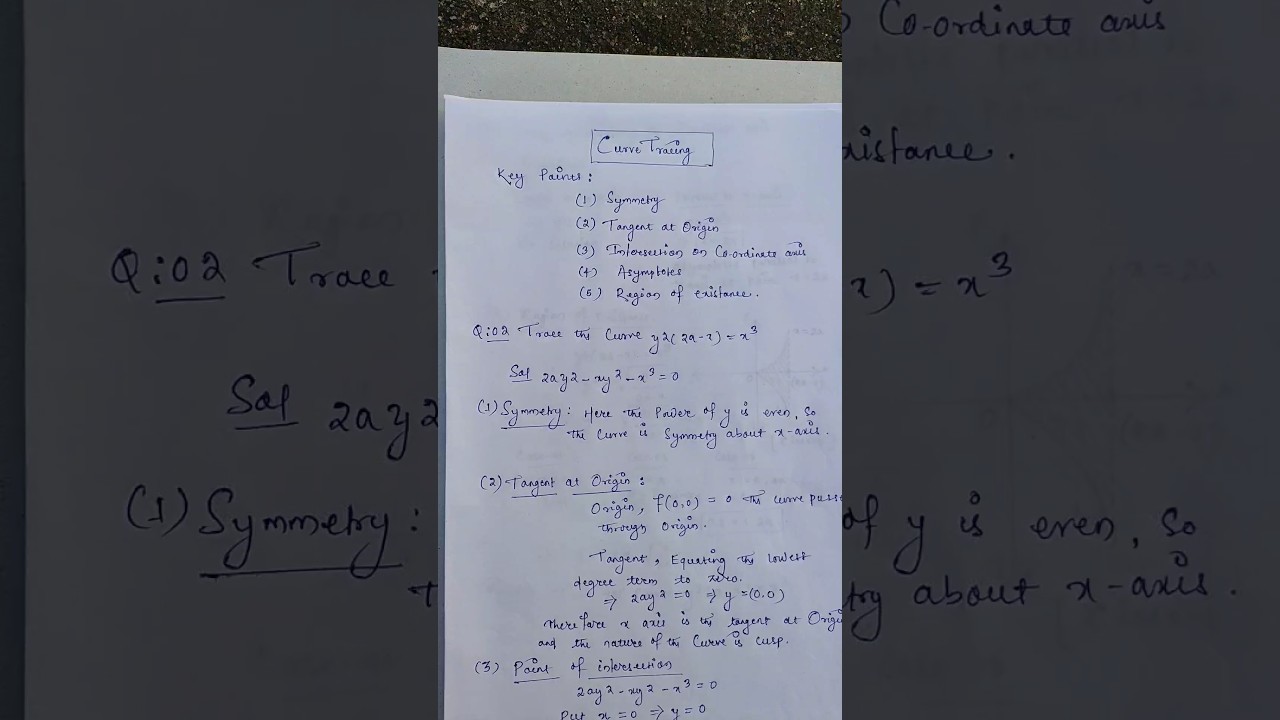 Curve Tracing
Key Points:
(1) Symmetry
(2) Tangent at Origin
(3) Intersection on Co-ordinate axis
(4) Asymptotes
(5) Region of existance.
Q:02 Trace the Curve y2(2a-x) = x³
Sol 2ay2 - xy² - x³ = 0
(1) Symmetry: Here the Power of y is even, So
the Curve is Symmetry about x-axis.
(2) Tangent at Origin:
Origin, f(0,0) = 0 the curve pass
through Origin.
Tangent, Equating the lowest
degree term to zero.
⇒ 2ay² = 0 ⇒ y = (0,0)
Therefore x axis is the tangent at Origin
and the nature of the Curve is cusp.
(3) Point of intersection
2ay² - xy² - x³ = 0
Put x = 0 ⇒ y = 0
Co-ordinate axis
xistance.
Q:02 Trace
x) = x³
Sol 2ay2
(1) Symmetry:
of y is even, So
try about x-axis.